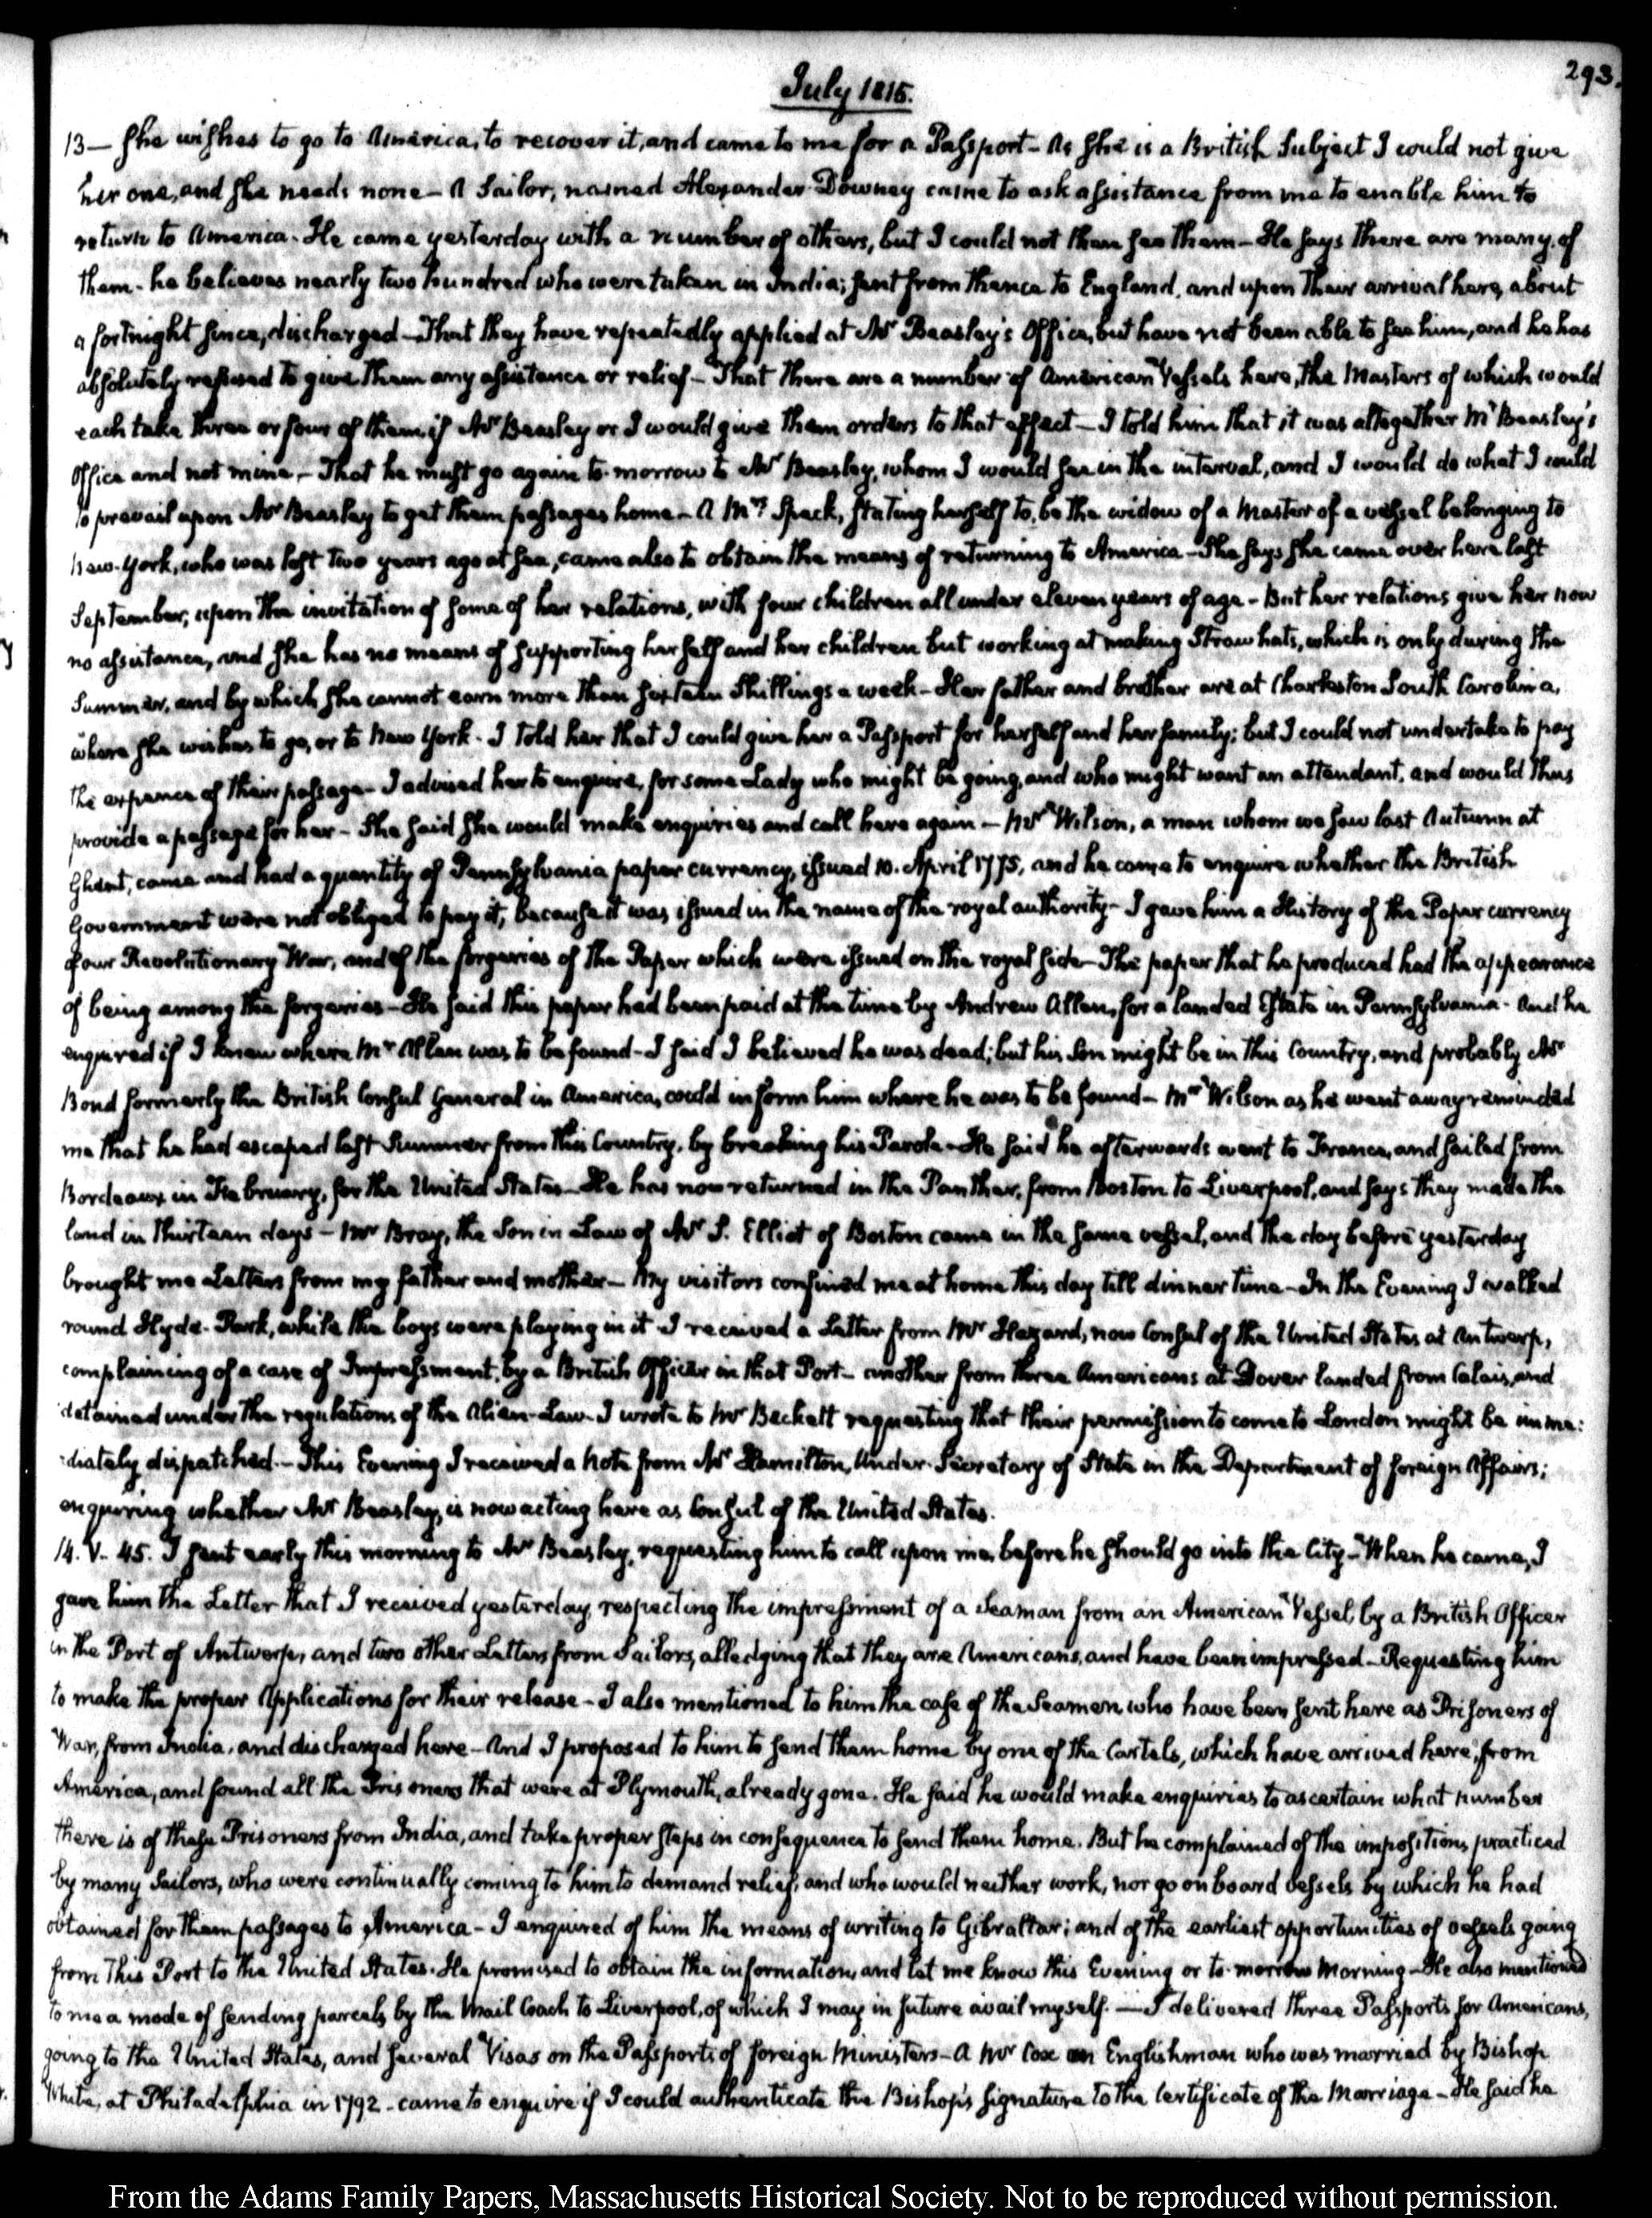 293.
July 1815.
13— She wishes to go to America, to recover it, and came to me for a Passport – As she is a British Subject I could not give
her one, and she needs none – A Sailor, named Alexander Downey came to ask assistance from me to enable him to
return to America. He came yesterday with a number of others, but I could not then see them – He says there are many of
them – he believes nearly two hundred who were taken in India; sent from thence to England, and upon their arrival here, about
a fortnight since, discharged – That they have repeatedly applied at Mr Beasley's Office, but have not been able to see him, and he has
absolutely refused to give them any assistance or relief – That there are a number of American Vessels here, the Masters of which would
each take three or four of them if Mr Beasley or I would give them orders to that effect – I told him that it was altogether Mr Beasley's
Office and not mine – That he must go again to-morrow to Mr Beasley, whom I would see in the interval, and I would do what I could
to prevail upon Mr Beasley to get them passages home – A Mrs Speck, stating herself to be the widow of a Master of a vessel belonging to
New-York, who was lost two years ago at sea, came also to obtain the means of returning to America – She says she came over here last
September, upon the invitation of some of her relations, with four children all under eleven years of age – But her relations give her now
no assistance, and she has no means of supporting herself and her children but working at making Straw hats, which is only during the
Summer, and by which she cannot earn more than sixteen Shillings a week – Her father and brother are at Charleston South Carolina,
where she wishes to go, or to New York. I told her that I could give her a Passport for herself and her family; but I could not undertake to pay
the expence of their passage – I advised her to enquire, for some Lady who might be going, and who might want an attendant, and would thus
provide a passage for her – She said she would make enquiries and call here again – Mr Wilson, a man whom we saw last Autumn at
Ghent, came and had a quantity of Pennsylvania paper currency, issued 10. April 1775, and he came to enquire whether the British
Government were not obliged to pay it, because it was issued in the name of the royal authority – I gave him a History of the Paper currency
of our Revolutionary War, and of the forgeries of the Paper which were issued on the royal side – The paper that he produced had the appearance
of being among the forgeries – He said this paper had been paid at the time by Andrew Allen, for a landed Estate in Pennsylvania – And he
enquired if I knew where Mr Allen was to be found – I said I believed he was dead; but his Son might be in this Country, and probably Mr
Bond formerly the British Consul General in America, could inform him where he was to be found – Mr Wilson as he went away reminded
me that he had escaped last Summer from this Country, by breaking his Parole – He said he afterwards went to France, and sailed from
Bordeaux in February, for the United States – He has now returned in the Panther, from Boston to Liverpool, and says they made the
land in thirteen days – Mr Bray, the Son in Law of Mr S. Elliot of Boston came in the same vessel, and the day before yesterday
brought me Letters from my father and mother – My visitors confined me at home this day till dinner time – In the Evening I walked
round Hyde-Park, while the boys were playing in it – I received a Letter from Mr Hazard, now Consul of the United States at Antwerp,
complaining of a case of Impressment, by a British Officer in that Port – another from three Americans at Dover landed from Calais, and
detained under the regulations of the Alien-Law – I wrote to Mr Beckett requesting that their permission to come to London might be imme:
:diately dispatched. – This Evening I received a Note from Mr Hamilton, Under-Secretary of State in the Department of foreign Affairs;
enquiring whether Mr Beasley, is now acting here as Consul of the United States.
14. V. 45. I sent early this morning to Mr Beasley, requesting him to call upon me, before he should go into the City – When he came, I
gave him the Letter that I received yesterday, respecting the impressment of a Seaman from an American Vessel, by a British Officer
in the Port of Antwerp, and two other Letters from Sailors, alledging that they are Americans, and have been impressed – Requesting him
to make the proper Applications for their release – I also mentioned to him the case of the Seamen, who have been sent here as Prisoners of
War, from India, and discharged here – And I proposed to him to send them home by one of the Cartels, which have arrived here, from
America, and found all the Prisoners that were at Plymouth, already gone. He said he would make enquiries to ascertain what number
there is of these Prisoners from India, and take proper steps in consequence to send them home. But he complained of the impositions practiced
by many Sailors, who were continually coming to him to demand relief, and who would neither work, nor go on board vessels by which he had
obtained for them passages to America – I enquired of him the means of writing to Gibraltar; and of the earliest opportunities of vessels going
from this Port to the United States. He promised to obtain the information, and let me know this Evening or to-morrow Morning – He also mentioned
to me a mode of sending parcels by the Mail Coach to Liverpool, of which I may in future avail myself. — I delivered three Passports for Americans,
going to the United States, and several Visas on the Passports of foreign Ministers – A Mr Cox an Englishman who was married by Bishop
White, at Philadelphia in 1792 – came to enquire if I could authenticate the Bishop's signature to the Certificate of the Marriage – He said he
From the Adams Family Papers, Massachusetts Historical Society. Not to be reproduced without permission.